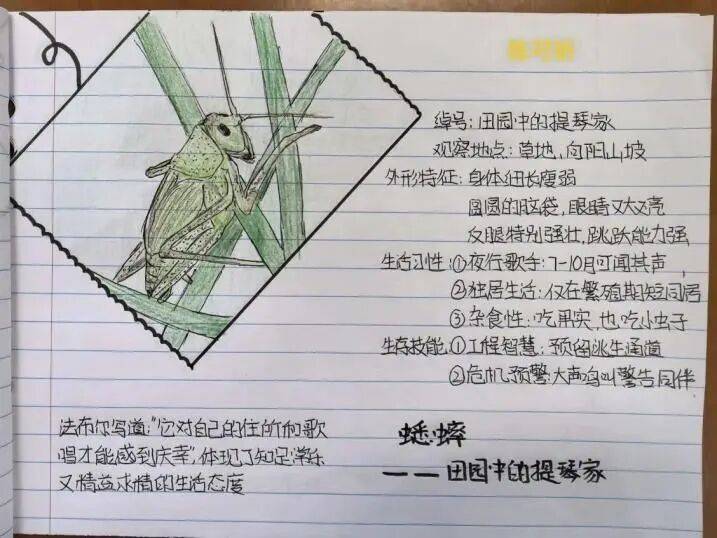 绰号：田园中的提琴家
观察地点：草地，向阳山坡
外形特征：身体细长瘦弱
圆圆的脑袋，眼睛又大又亮
后腿特别强壮，跳跃能力强
生活习性：①夜行歌手：7-10月可闻其声，
②独居生活：仅在繁殖期短同居
③杂食性：吃果实，也吃小虫子
生存技能：①工程智慧：预留逃生通道
②危机预警：大声鸣叫警告同伴
法布尔写道："它对自己的住所和歌
唱才能感到庆幸"，体现了知足常乐
又精益求精的生活态度
蟋蟀
——田园中的提琴家